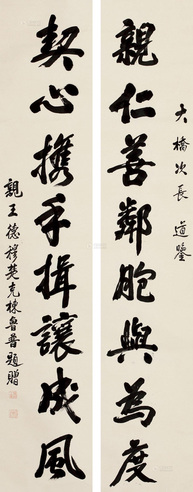 大橋次長 道鑒
親仁善鄰胞與為度
契心攜手揖讓成風
親王德穆楚克棟魯普題贈